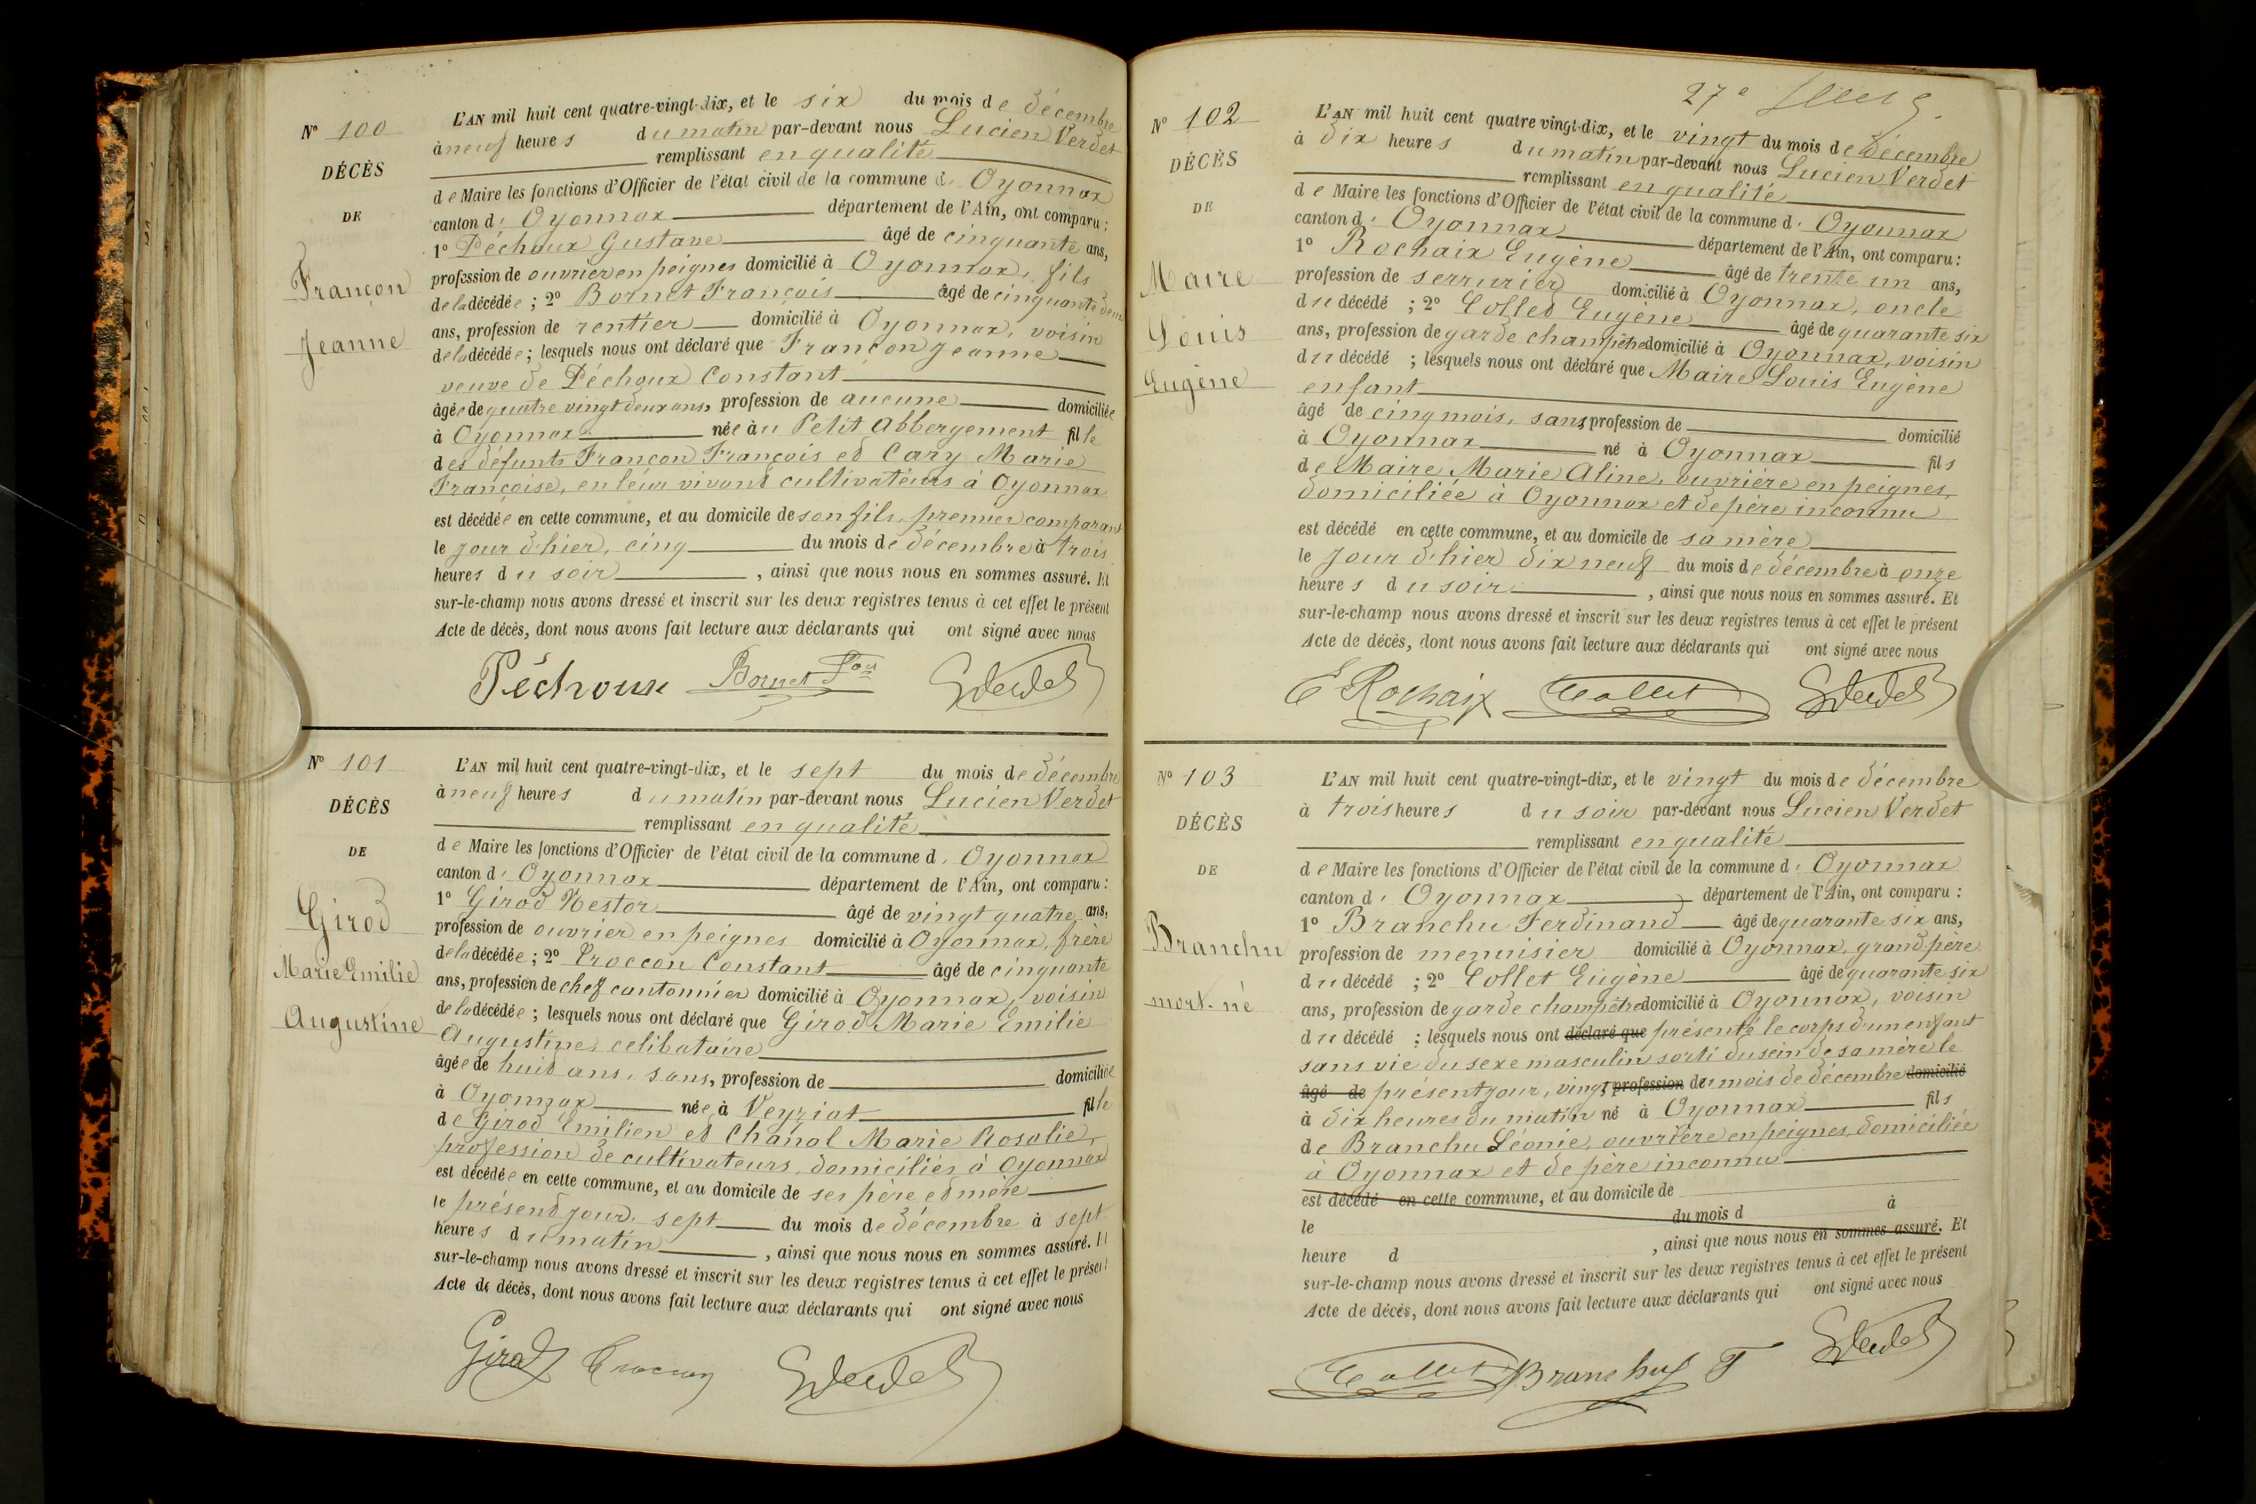 N° 100
DÉCÈS
DE
Françon
Jeanne
L'AN mil huit cent quatre-vingt-dix, et le six du mois de décembre
à neuf heures du matin par-devant nous Lucien Verdet
remplissant en qualité
de Maire les fonctions d'Officier de l'état civil de la commune d' Oyonnax
canton d' Oyonnax département de l'Ain, ont comparu :
1° Péchoux Gustave âgé de cinquante ans,
profession de ouvrier en peignes domicilié à Oyonnax, fils
de la décédée ; 2° Bornet François âgé de cinquante deux
ans, profession de rentier domicilié à Oyonnax, voisin
de la décédée ; lesquels nous ont déclaré que Françon Jeanne
veuve de Péchoux Constant
âgée de quatre vingt deux ans, profession de aucune domiciliée
à Oyonnax née au Petit Abbergement fille
des défunts Françon François et Cary Marie
Françoise, en leur vivant cultivateurs à Oyonnax
est décédée en cette commune, et au domicile de son fils, premier comparant
le jour d'hier, cinq du mois de décembre à trois
heures du soir, ainsi que nous nous en sommes assuré. Et
sur-le-champ nous avons dressé et inscrit sur les deux registres tenus à cet effet le présent
Acte de décès, dont nous avons fait lecture aux déclarants qui ont signé avec nous
Péchoux Bornet Fois
N° 101
DÉCÈS
DE
Girod
Marie Emilie
Augustine
L'AN mil huit cent quatre-vingt-dix, et le sept du mois de décembre
à neuf heures du matin par-devant nous Lucien Verdet
remplissant en qualité
de Maire les fonctions d'Officier de l'état civil de la commune d' Oyonnax
canton d' Oyonnax département de l'Ain, ont comparu :
1° Girod Nestor âgé de vingt quatre ans,
profession de ouvrier en peignes domicilié à Oyonnax, frère
de la décédée ; 2° Troccon Constant âgé de cinquante
ans, profession de chef cantonnier domicilié à Oyonnax, voisin
de la décédée ; lesquels nous ont déclaré que Girod Marie Emilie
Augustine, célibataire
âgée de huit ans, sans, profession de domiciliée
à Oyonnax née à Veyziat fille
de Girod Emilien et Chanal Marie Rosalie,
profession de cultivateurs, domiciliés à Oyonnax
est décédée en cette commune, et au domicile de ses père et mère
le présent jour, sept du mois de décembre à sept
heures du matin, ainsi que nous nous en sommes assuré. Et
sur-le-champ nous avons dressé et inscrit sur les deux registres tenus à cet effet le présent
Acte de décès, dont nous avons fait lecture aux déclarants qui ont signé avec nous
Girod Troccon
27e
N° 102
DÉCÈS
DE
Maire
Louis
Eugène
L'AN mil huit cent quatre vingt-dix, et le vingt du mois de décembre
à dix heures du matin par-devant nous Lucien Verdet
remplissant en qualité
de Maire les fonctions d'Officier de l'état civil de la commune d' Oyonnax
canton d' Oyonnax département de l'Ain, ont comparu :
1° Rochaix Eugène âgé de trente un ans,
profession de serrurier domicilié à Oyonnax, oncle
du décédé ; 2° Collet Eugène âgé de quarante six
ans, profession de garde champêtre domicilié à Oyonnax, voisin
du décédé ; lesquels nous ont déclaré que Maire Louis Eugène
enfant
âgé de cinq mois, sans, profession de domicilié
à Oyonnax né à Oyonnax fils
de Maire Marie Aline, ouvrière en peignes,
domiciliée à Oyonnax et de père inconnu
est décédé en cette commune, et au domicile de sa mère
le jour d'hier dix neuf du mois de décembre à onze
heures du soir, ainsi que nous nous en sommes assuré. Et
sur-le-champ nous avons dressé et inscrit sur les deux registres tenus à cet effet le présent
Acte de décès, dont nous avons fait lecture aux déclarants qui ont signé avec nous
E Rochaix Collet
N° 103
DÉCÈS
DE
Branchu
mort-né
L'AN mil huit cent quatre-vingt-dix, et le vingt du mois de décembre
à trois heures du soir par-devant nous Lucien Verdet
remplissant en qualité
de Maire les fonctions d'Officier de l'état civil de la commune d' Oyonnax
canton d' Oyonnax département de l'Ain, ont comparu :
1° Branchu Ferdinand âgé de quarante six ans,
profession de menuisier domicilié à Oyonnax, grand père
du décédé ; 2° Collet Eugène âgé de quarante six
ans, profession de garde champêtre domicilié à Oyonnax, voisin
du décédé ; lesquels nous ont déclaré que présenté le corps d'un enfant
sans vie du sexe masculin sorti du sein de sa mère le
âgé de présent jour, vingt, profession du mois de décembre domicilié
à dix heures du matin né à Oyonnax fils
de Branchu Léonie, ouvrière en peignes, domiciliée
à Oyonnax et de père inconnu
est décédé en cette commune, et au domicile de
le du mois d à
heure d , ainsi que nous nous en sommes assuré. Et
sur-le-champ nous avons dressé et inscrit sur les deux registres tenus à cet effet le présent
Acte de décès, dont nous avons fait lecture aux déclarants qui ont signé avec nous
Collet Branchu F